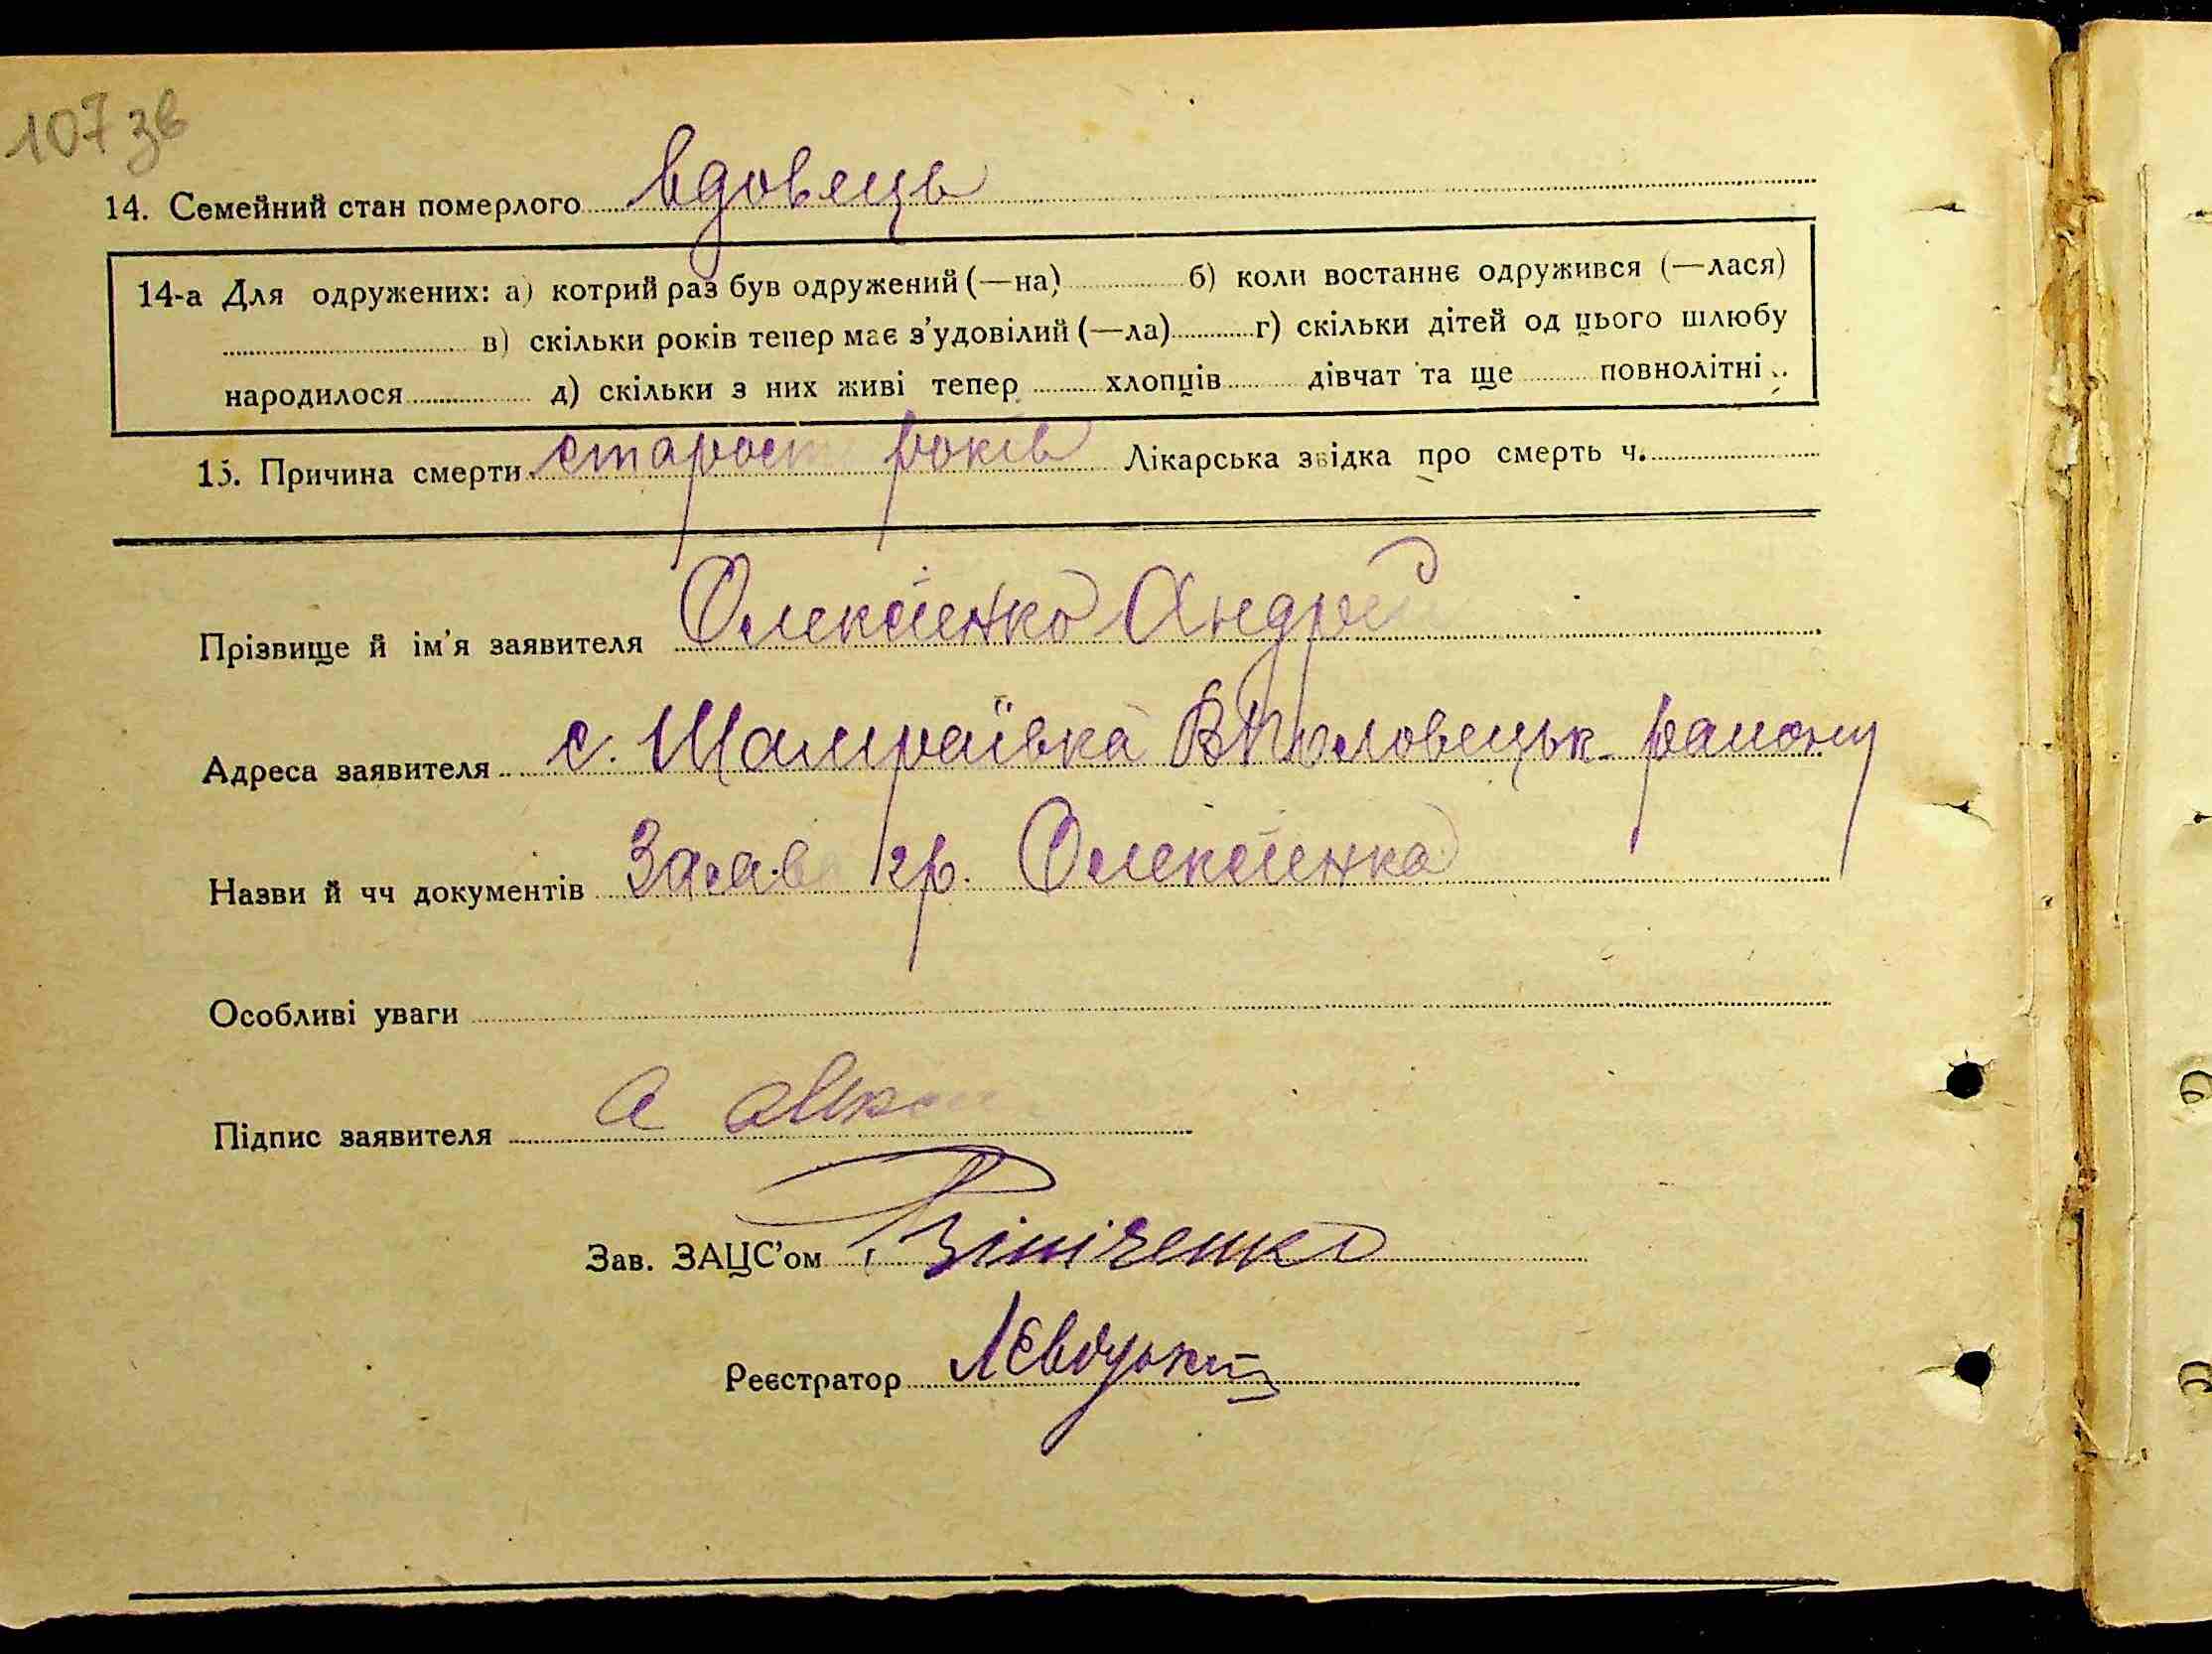 107 зв
14. Семейний стан померлого вдовець
14-а Для одружених: а) котрий раз був одружений (—на) б) коли востаннє одружився (—лася)
в) скільки років тепер має з'удовілий (—ла) г) скільки дітей од цього шлюбу
народилося д) скільки з них живі тепер хлопців дівчат та ще повнолітні
15. Причина смерти старост років Лікарська звідка про смерть ч.
Прізвище й ім'я заявителя Олексієнко Андрей
Адреса заявителя с. Шамраївка ВПоловецьк. району
Назви й чч документів Заява гр. Олексієнка
Особливі уваги
Підпис заявителя А
Зав. ЗАЦС'ом
Реєстратор